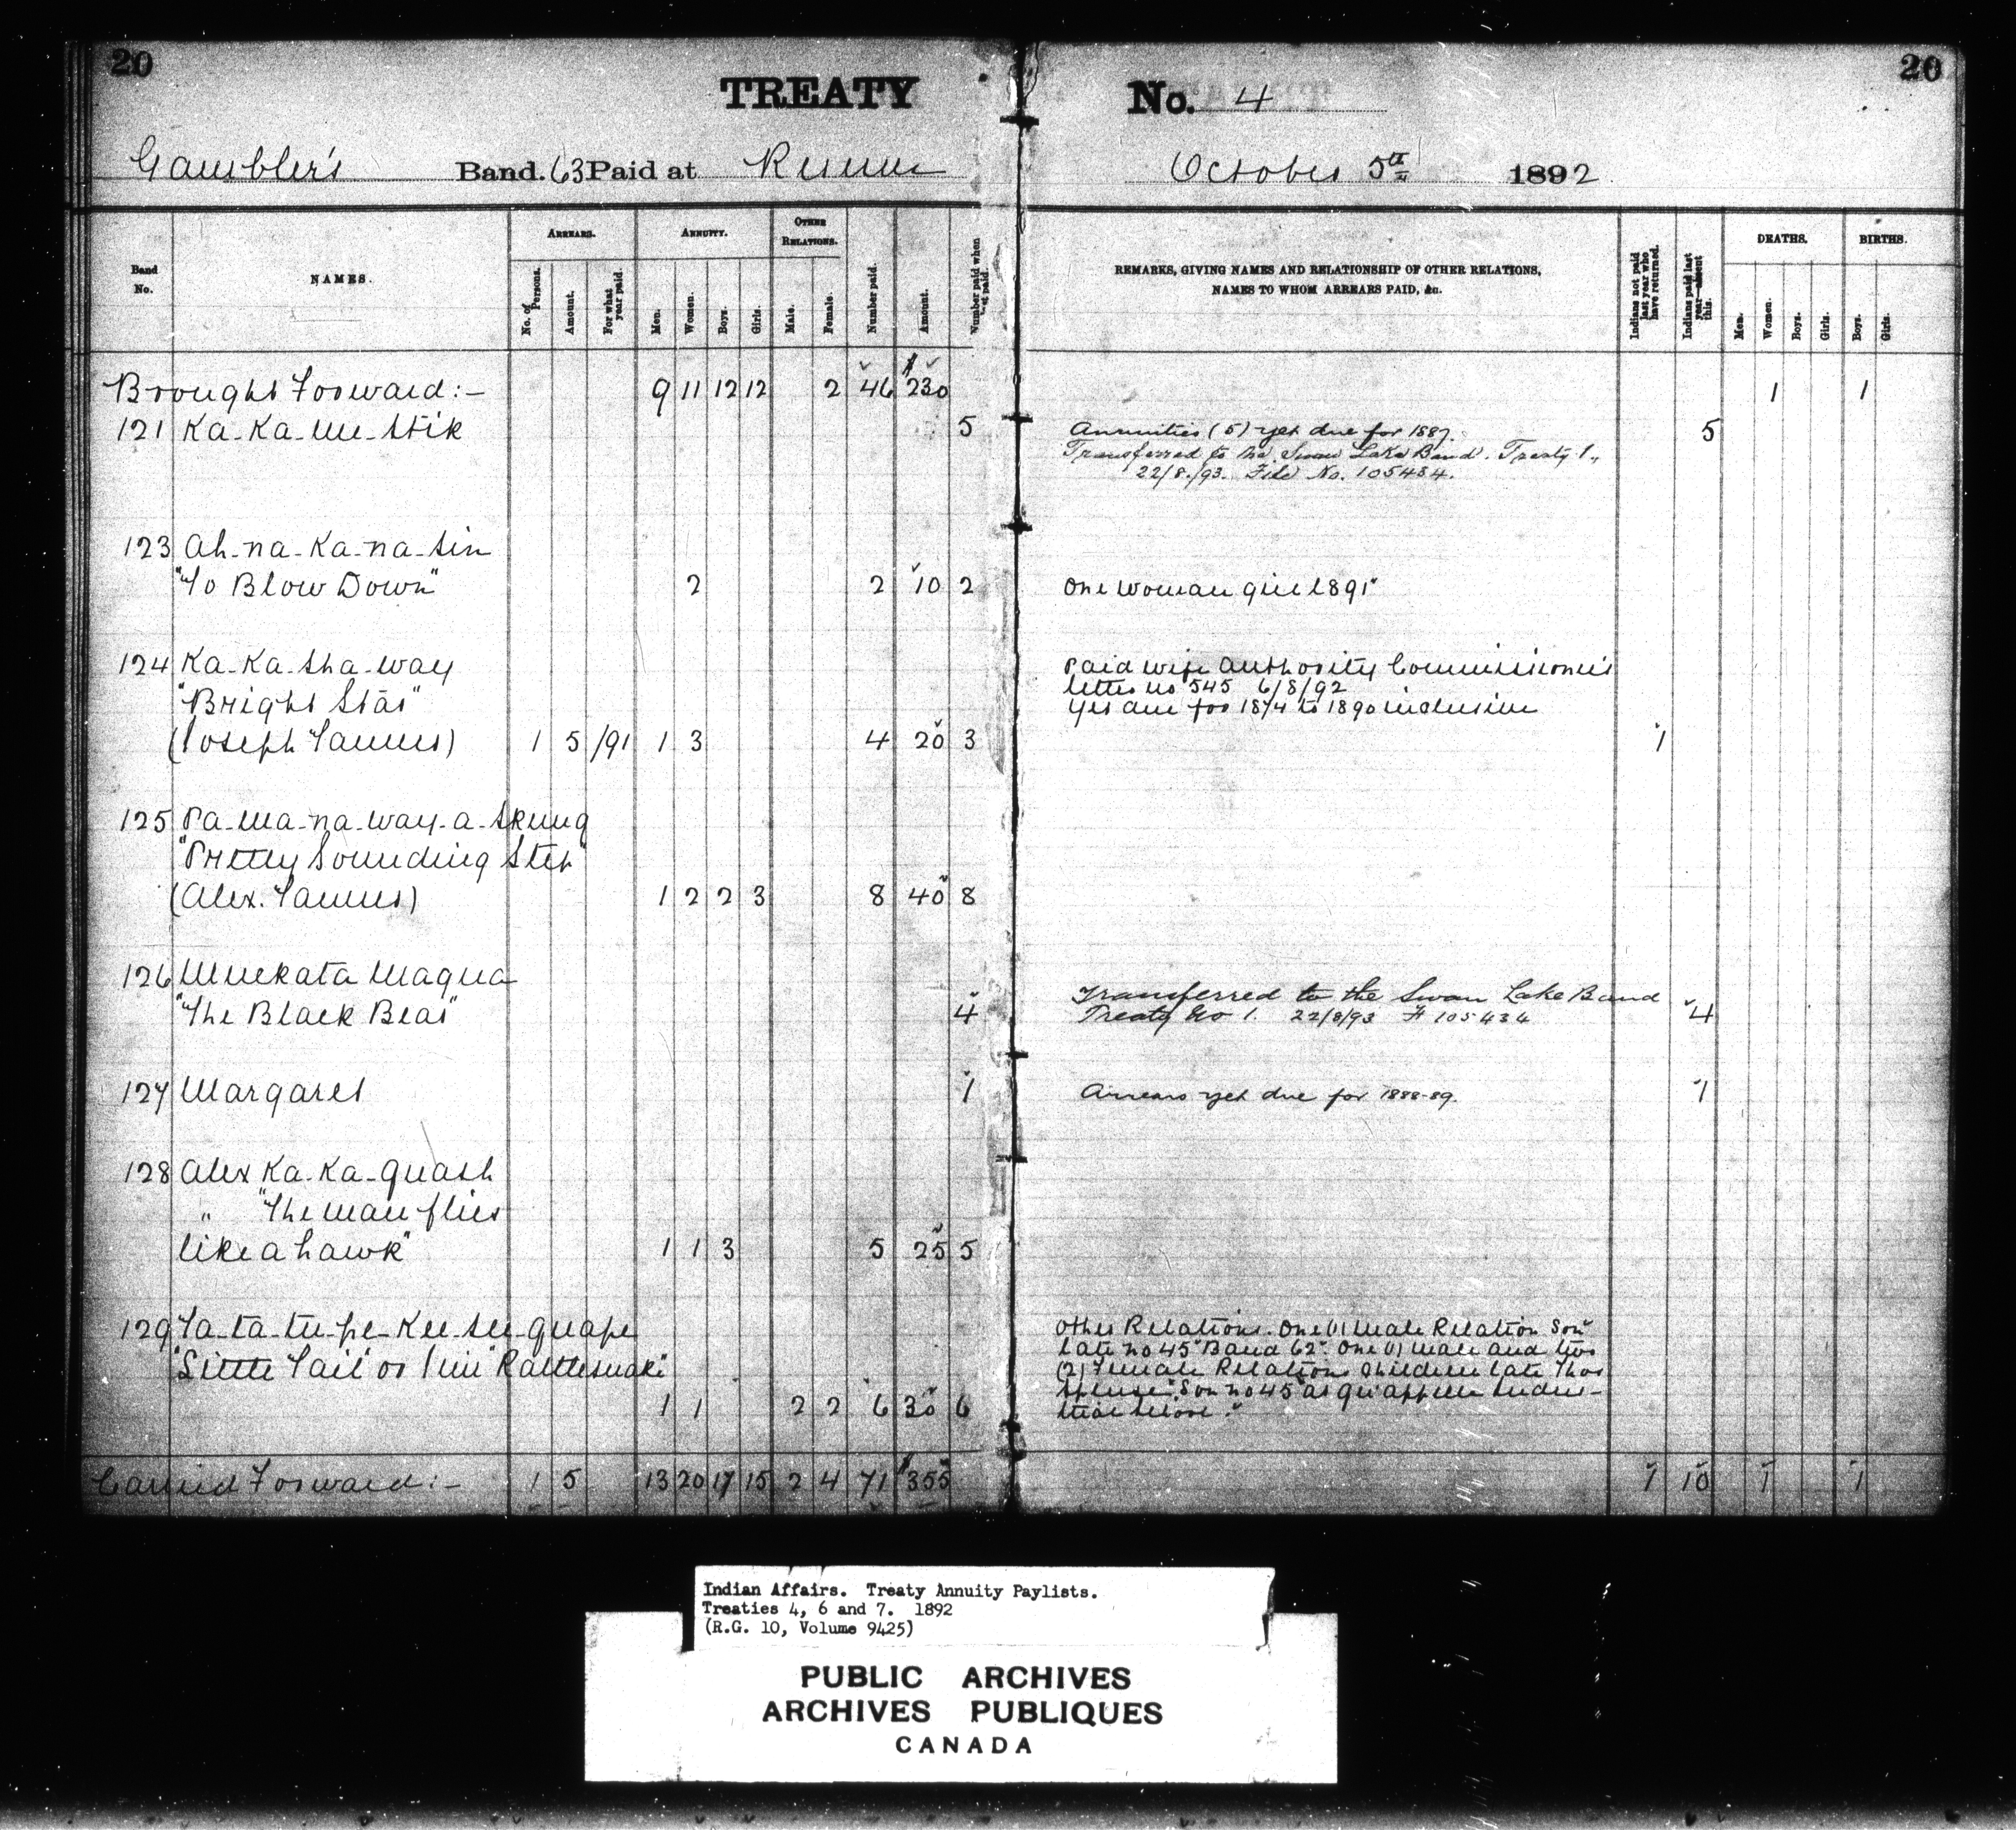 20
20
TREATY No. 4
Gambler's Band. 63 Paid at October 5th 1892
Band No.
NAMES.
ARREARS.
No. of Persons.
Amount.
For what year paid.
ANNUITY.
Men.
Women.
Boys.
Girls.
OTHER RELATIONS.
Male.
Female.
Number paid.
Amount.
Number paid when last paid.
REMARKS, GIVING NAMES AND RELATIONSHIP OF OTHER RELATIONS,
NAMES TO WHOM ARREARS PAID, &c.
Indians not paid last year who have returned.
Indians paid last year—absent this.
DEATHS.
Men.
Women.
Boys.
Girls.
BIRTHS.
Boys.
Girls.
Brought Forward:- 9 11 12 12 2 46 $230 1 1
121 Ka-Ka-me-stik 5 Annuities (5) yet due for 1887. 5
Transferred to the Swan Lake Band. Treaty 1.,
22/8/93. File No. 105434.
123 Ah-na-ka-na-sin
"To Blow Down" 2 2 10 2 One woman girl 1891"
124 Ka-Ka-sha-way Paid wife authority Commissioner's
"Bright Star" letter no 545 6/8/92
Yet due for 1874 to 1890 inclusive
(Joseph Tanner) 1 5 /91 1 3 4 20 3 1
125 Pa-ma-na-way-a-skung
"Pretty Sounding Step"
(Alex. Tanner) 1 2 2 3 8 40 8
126 Muckata Maqua Transferred to the Swan Lake Band
"The Black Bear" 4 Treaty No 1. 22/8/93 F 105434 4
127 Margaret 1 Arrears yet due for 1888-89. 1
128 Alex Ka-Ka-quash
" "The man flies
like a hawk" 1 1 3 5 25 5
129 Ta-ta-tu-pe-Kee-see-quape Other Relations. One (1) Male Relation Son
"Little Tail" or Rattlesnake" late no 45 "Band 62". One (1) male and two
(2) Female Relations children late Thos
Spence. "Son no 45 at Qu'appelle Indus-
1 1 2 2 6 30 6 trial School."
Carried Forward:- 1 5 13 20 17 15 2 4 71 $355 1 10 1 1
Indian Affairs. Treaty Annuity Paylists.
Treaties 4, 6 and 7. 1892
(R.G. 10, Volume 9425)
PUBLIC ARCHIVES
ARCHIVES PUBLIQUES
CANADA